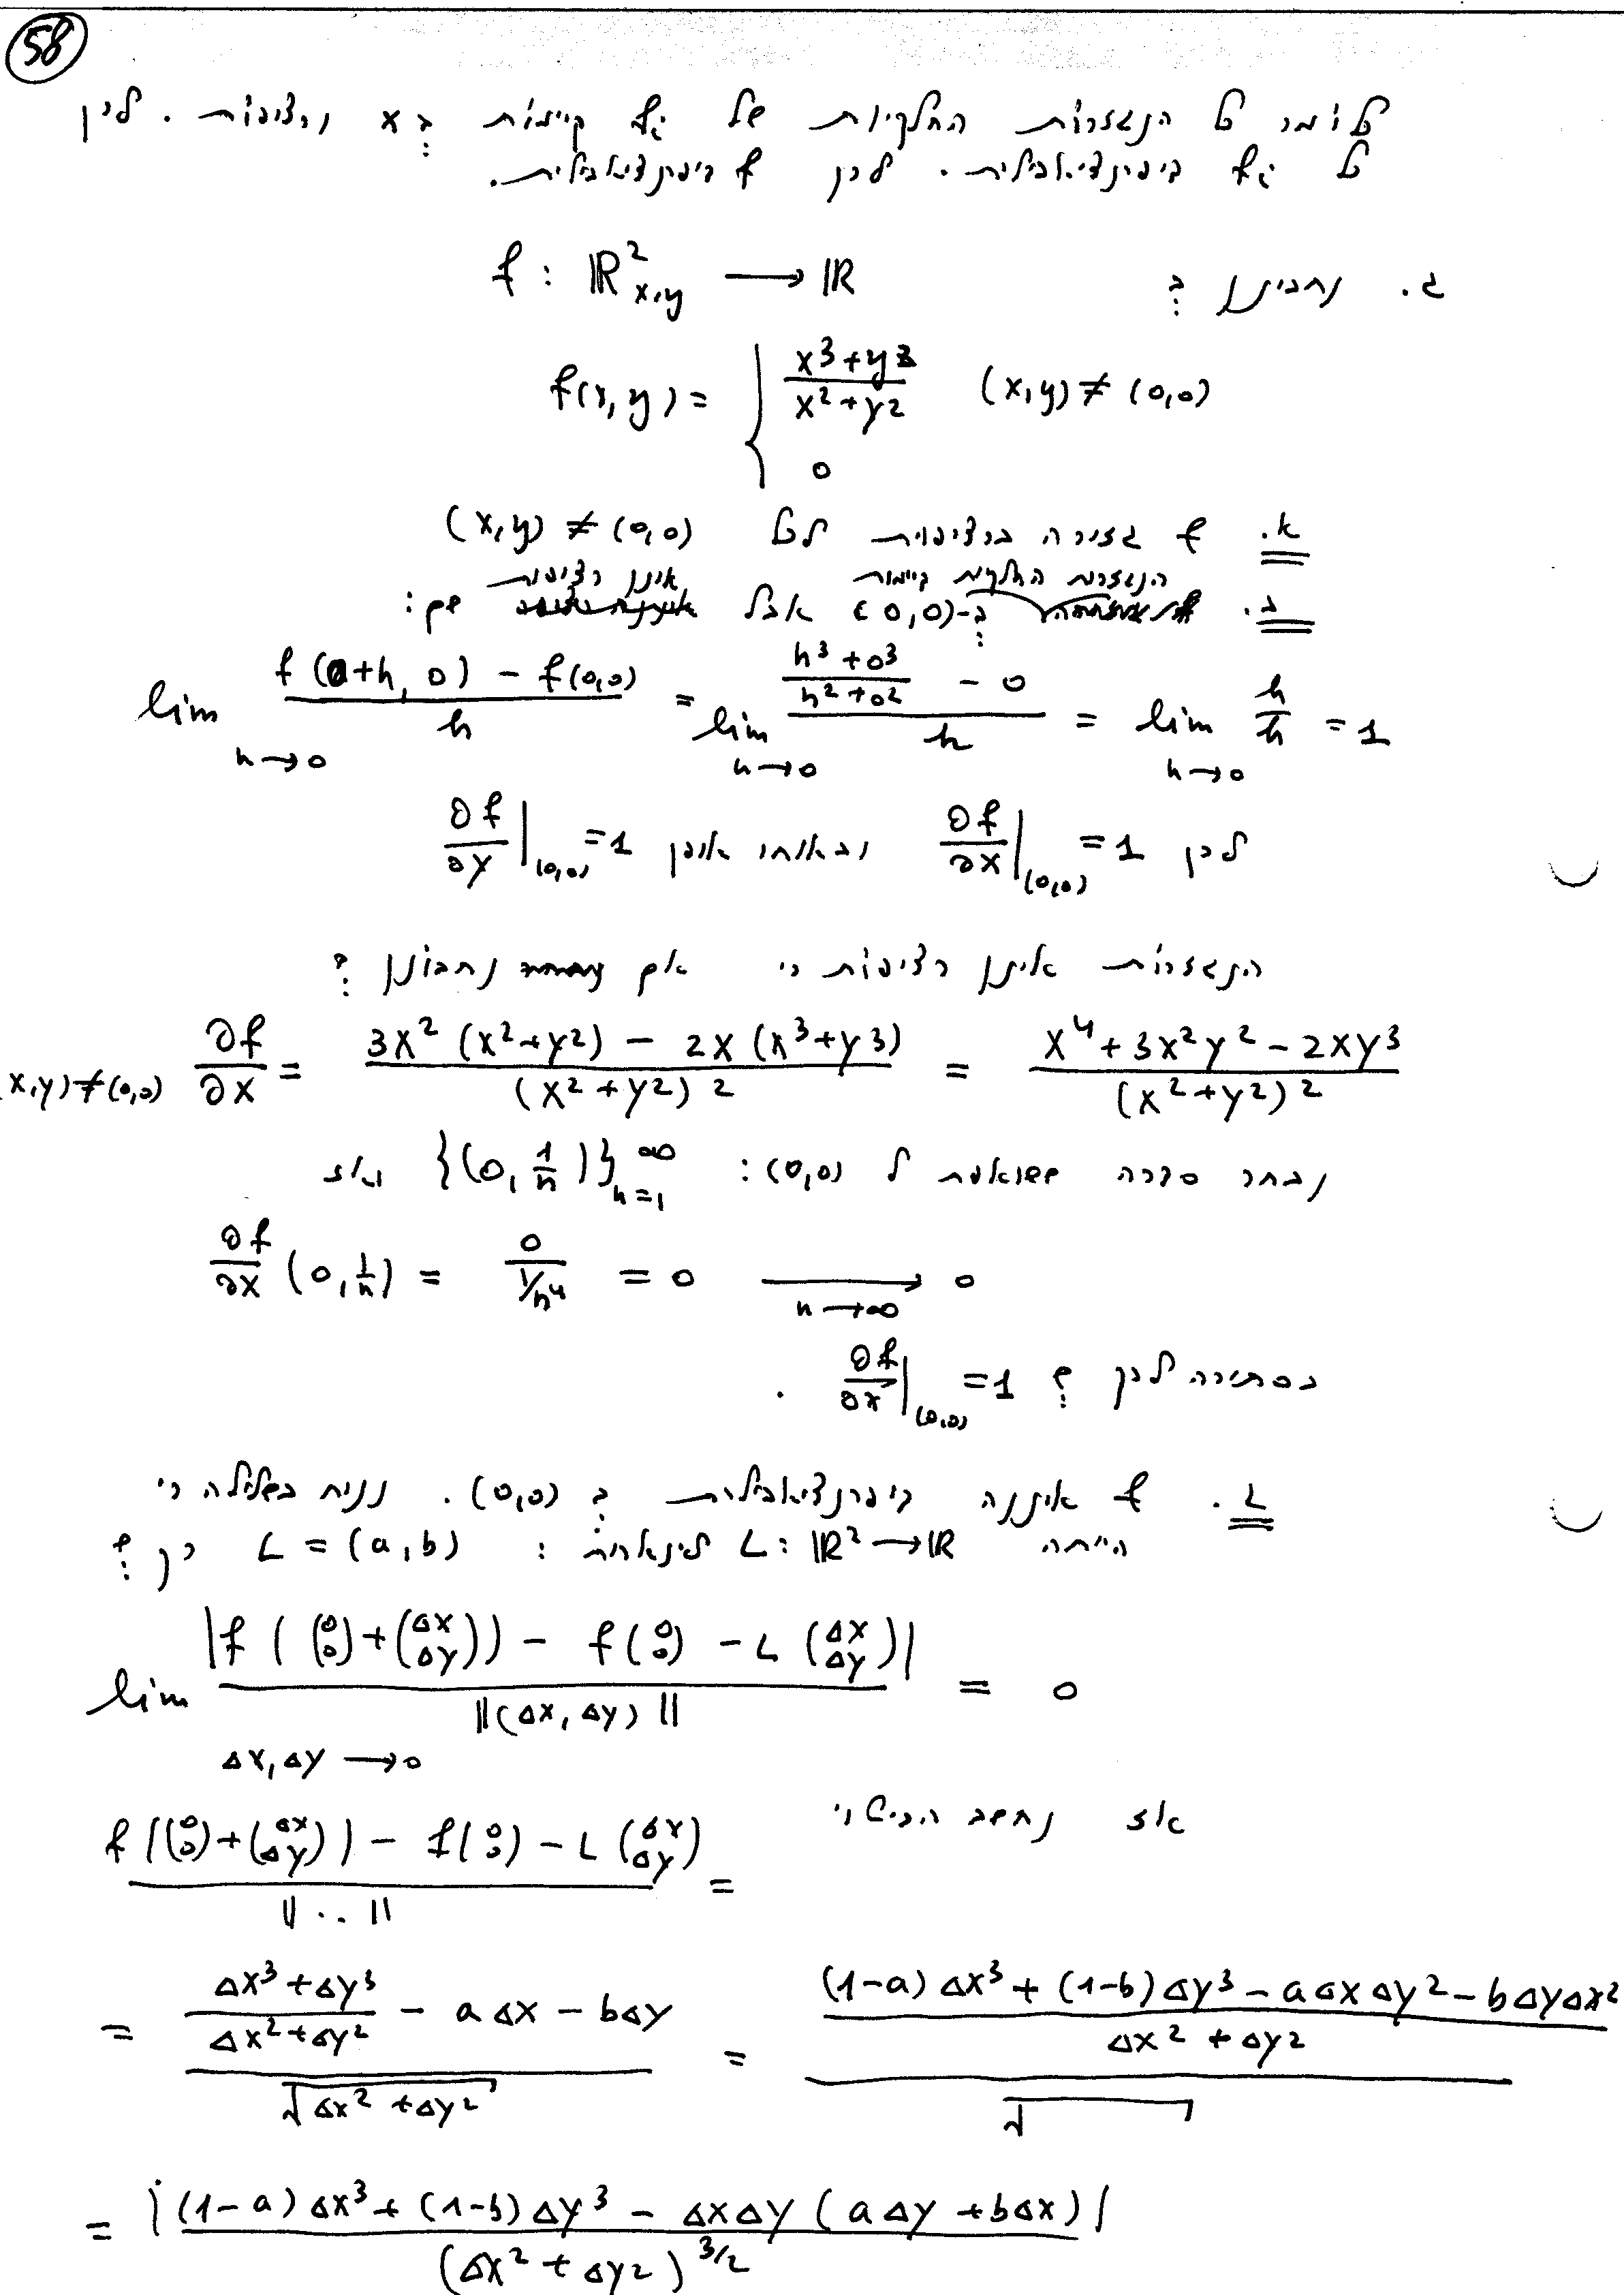 58
כלומר כל הנגזרות החלקיות של fj קיימות ב x ורציפות. לכן
כל fj דיפרנציאבילית. לכן f דיפרנציאבילית.
ג. נתבונן ב: f : ℝ²x,y → ℝ
f(x,y) = { (x³+y³)/(x²+y²) (x,y) ≠ (0,0)
0
א. f גזירה ברציפות לכל (x,y) ≠ (0,0)
ב. הנגזרות החלקיות קיימות ב-(0,0) אבל אינן רציפות שם:
lim h→0 (f(0+h, 0) - f(0,0))/h = lim h→0 ((h³+0³)/(h²+0²) - 0)/h = lim h→0 h/h = 1
לכן ∂f/∂x|(0,0) = 1 ובאותו אופן ∂f/∂y|(0,0) = 1
הנגזרות אינן רציפות כי אם נתבונן ב:
(x,y)≠(0,0) ∂f/∂x = (3x²(x²+y²) - 2x(x³+y³))/(x²+y²)² = (x⁴+3x²y²-2xy³)/(x²+y²)²
נבחר סדרה ששואפת ל (0,0): {(0, 1/n)}∞n=1 ואז
∂f/∂x (0, 1/n) = 0/(1/n⁴) = 0 → n→∞ 0
בסתירה לכך ש: ∂f/∂x|(0,0) = 1 .
ג. f איננה דיפרנציאבילית ב (0,0). נניח בשלילה כי
הייתה L : ℝ² → ℝ לינארית : L = (a,b) כך ש:
lim Δx,Δy → 0 |f((0 0)+(Δx Δy)) - f(0 0) - L(Δx Δy)| / ||(Δx, Δy)|| = 0
אז נחשב הביטוי
(f((0 0)+(Δx Δy)) - f(0 0) - L(Δx Δy)) / ||..|| =
= ((Δx³+Δy³)/(Δx²+Δy²) - aΔx - bΔy)/√(Δx²+Δy²) = (((1-a)Δx³ + (1-b)Δy³ - aΔxΔy² - bΔyΔx²)/(Δx²+Δy²))/√
= |((1-a)Δx³ + (1-b)Δy³ - ΔxΔy(aΔy + bΔx))/(Δx²+Δy²)^3/2|